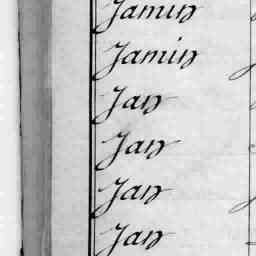 Jamin
Jamin
Jan
Jan
Jan
Jan